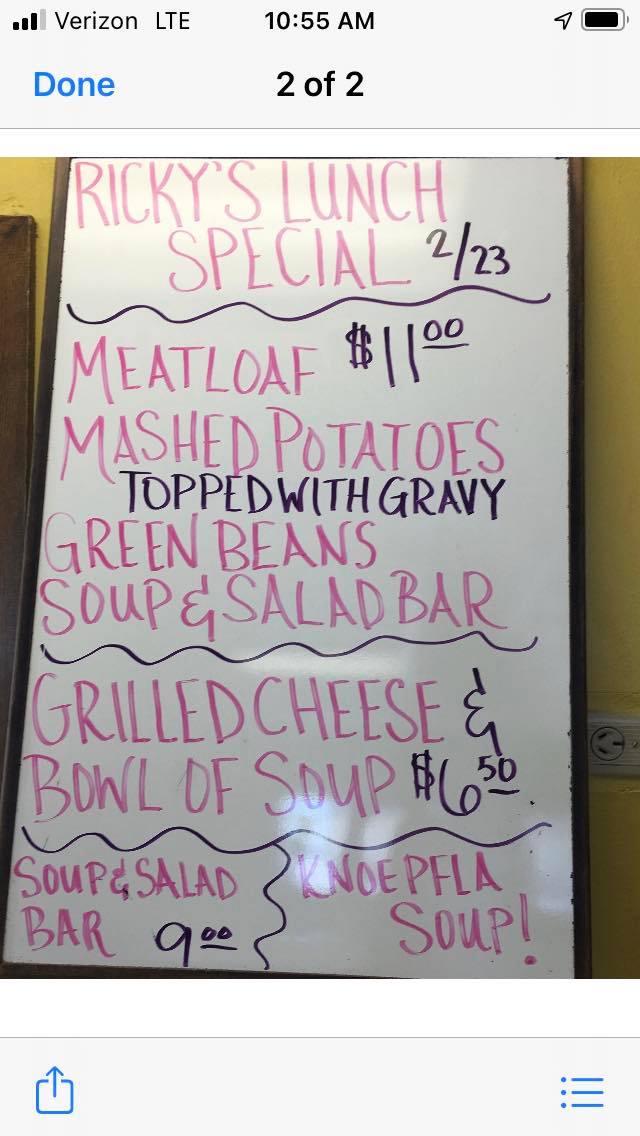 Verizon LTE 10:55 AM
Done 2 of 2
RICKY'S LUNCH
SPECIAL 2/23
MEATLOAF $11.00
MASHED POTATOES
TOPPED WITH GRAVY
GREEN BEANS
SOUP & SALAD BAR
GRILLED CHEESE &
BOWL OF SOUP $6.50
SOUP & SALAD
BAR 9.00
KNOEPFLA
SOUP!